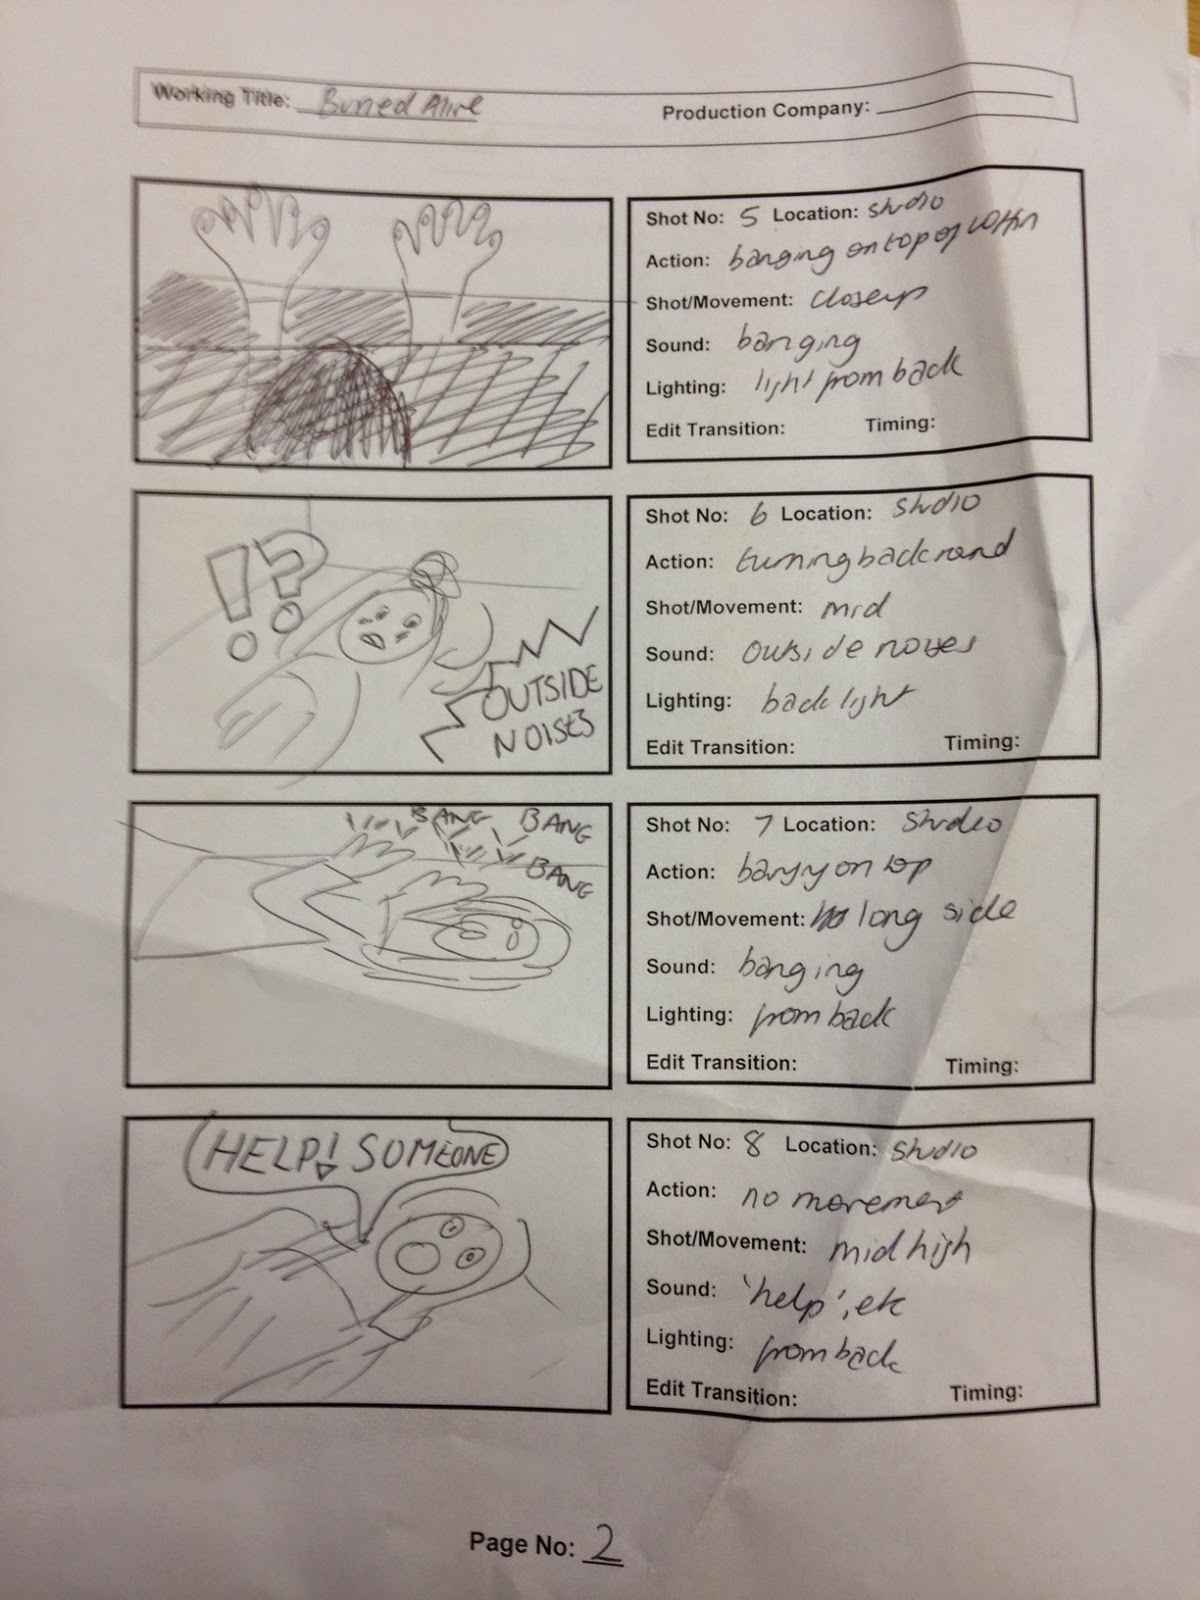 Working Title: Buried Alive
Production Company:
Shot No: 5 Location: studio
Action: banging on top of coffin
Shot/Movement: closeup
Sound: banging
Lighting: light from back
Edit Transition: Timing:
!?
OUTSIDE
NOISES
Shot No: 6 Location: studio
Action: turning back round
Shot/Movement: mid
Sound: outside noises
Lighting: back light
Edit Transition: Timing:
BANG BANG
BANG
Shot No: 7 Location: studio
Action: on top
Shot/Movement: long side
Sound: banging
Lighting: from back
Edit Transition: Timing:
HELP! SOMEONE
Shot No: 8 Location: studio
Action: no movement
Shot/Movement: mid high
Sound: 'help', etc
Lighting: from back
Edit Transition: Timing:
Page No: 2